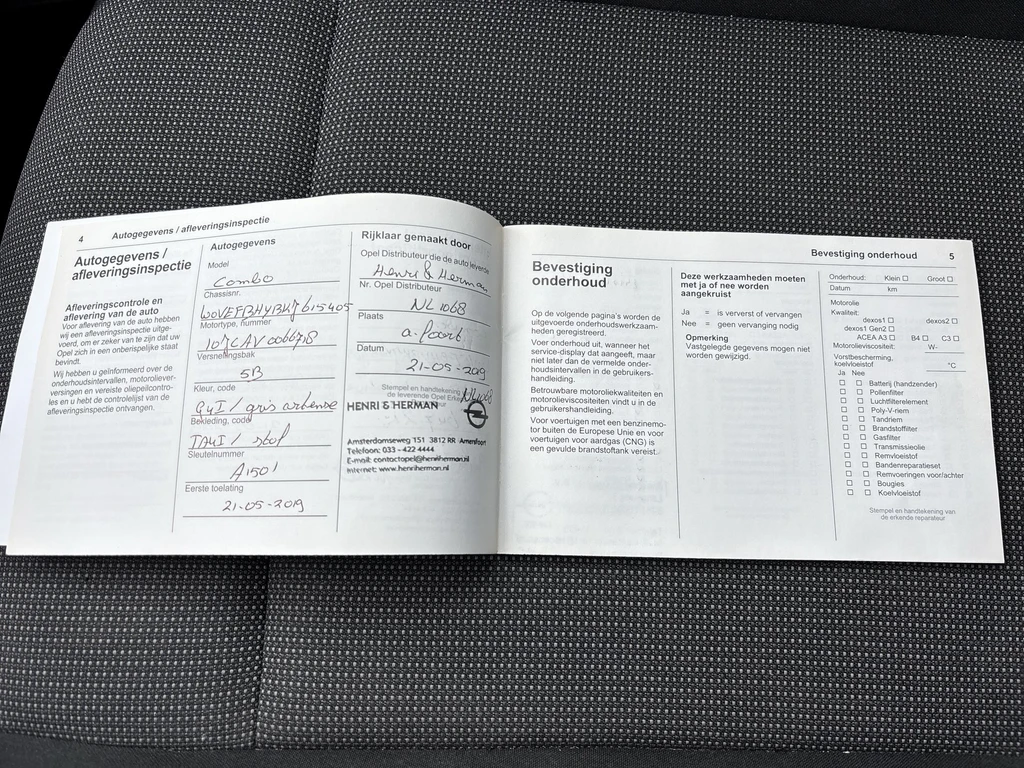 4 Autogegevens / afleveringsinspectie
Autogegevens /
afleveringsinspectie
Afleveringscontrole en
aflevering van de auto
Voor aflevering van de auto hebben
wij een afleveringsinspectie uitge-
voerd, om er zeker van te zijn dat uw
Opel zich in een onberispelijke staat
bevindt.
Wij hebben u geïnformeerd over de
onderhoudsintervallen, motoroliever-
versingen en vereiste oliepeilcontro-
les en u hebt de controlelijst van de
afleveringsinspectie ontvangen.
Autogegevens
Model
Combo
Chassisnr.
Motortype, nummer
Versnellingsbak
5B
Kleur, code
G4I / gris artense
Bekleding, code
TA4I / stof
Sleutelnummer
A1501
Eerste toelating
21-05-2019
Rijklaar gemaakt door
Opel Distributeur die de auto leverde
Henri & Herman
Nr. Opel Distributeur
NL 1068
Plaats
a.foort.
Datum
21-05-2019
Stempel en handtekening
de leverende Opel
NL1068
HENRI & HERMAN
Amsterdamseweg 151 3812 RR Amersfoort
Telefoon: 033 - 422 4444
E-mail: contactopel@henriherman.nl
Internet: www.henriherman.nl
Bevestiging onderhoud 5
Bevestiging
onderhoud
Op de volgende pagina's worden de
uitgevoerde onderhoudswerkzaam-
heden geregistreerd.
Voer onderhoud uit, wanneer het
service-display dat aangeeft, maar
niet later dan de vermelde onder-
houdsintervallen in de gebruikers-
handleiding.
Betrouwbare motoroliekwaliteiten en
motorolieviscositeiten vindt u in de
gebruikershandleiding.
Voor voertuigen met een benzinemo-
tor buiten de Europese Unie en voor
voertuigen voor aardgas (CNG) is
een gevulde brandstoftank vereist.
Deze werkzaamheden moeten
met ja of nee worden
aangekruist
Ja = is ververst of vervangen
Nee = geen vervanging nodig
Opmerking
Vastgelegde gegevens mogen niet
worden gewijzigd.
Onderhoud: Klein ☐ Groot ☐
Datum km
Motorolie
Kwaliteit:
dexos1 ☐ dexos2 ☐
dexos1 Gen2 ☐
ACEA A3 ☐ B4 ☐ C3 ☐
Motorolieviscositeit: W-
Vorstbescherming,
koelvloeistof °C
Ja Nee
☐ ☐ Batterij (handzender)
☐ ☐ Pollenfilter
☐ ☐ Luchtfilterelement
☐ ☐ Poly-V-riem
☐ ☐ Tandriem
☐ ☐ Brandstoffilter
☐ ☐ Gasfilter
☐ ☐ Transmissieolie
☐ ☐ Remvloeistof
☐ ☐ Bandenreparatieset
☐ ☐ Remvoeringen voor/achter
☐ ☐ Bougies
☐ ☐ Koelvloeistof
Stempel en handtekening van
de erkende reparateur